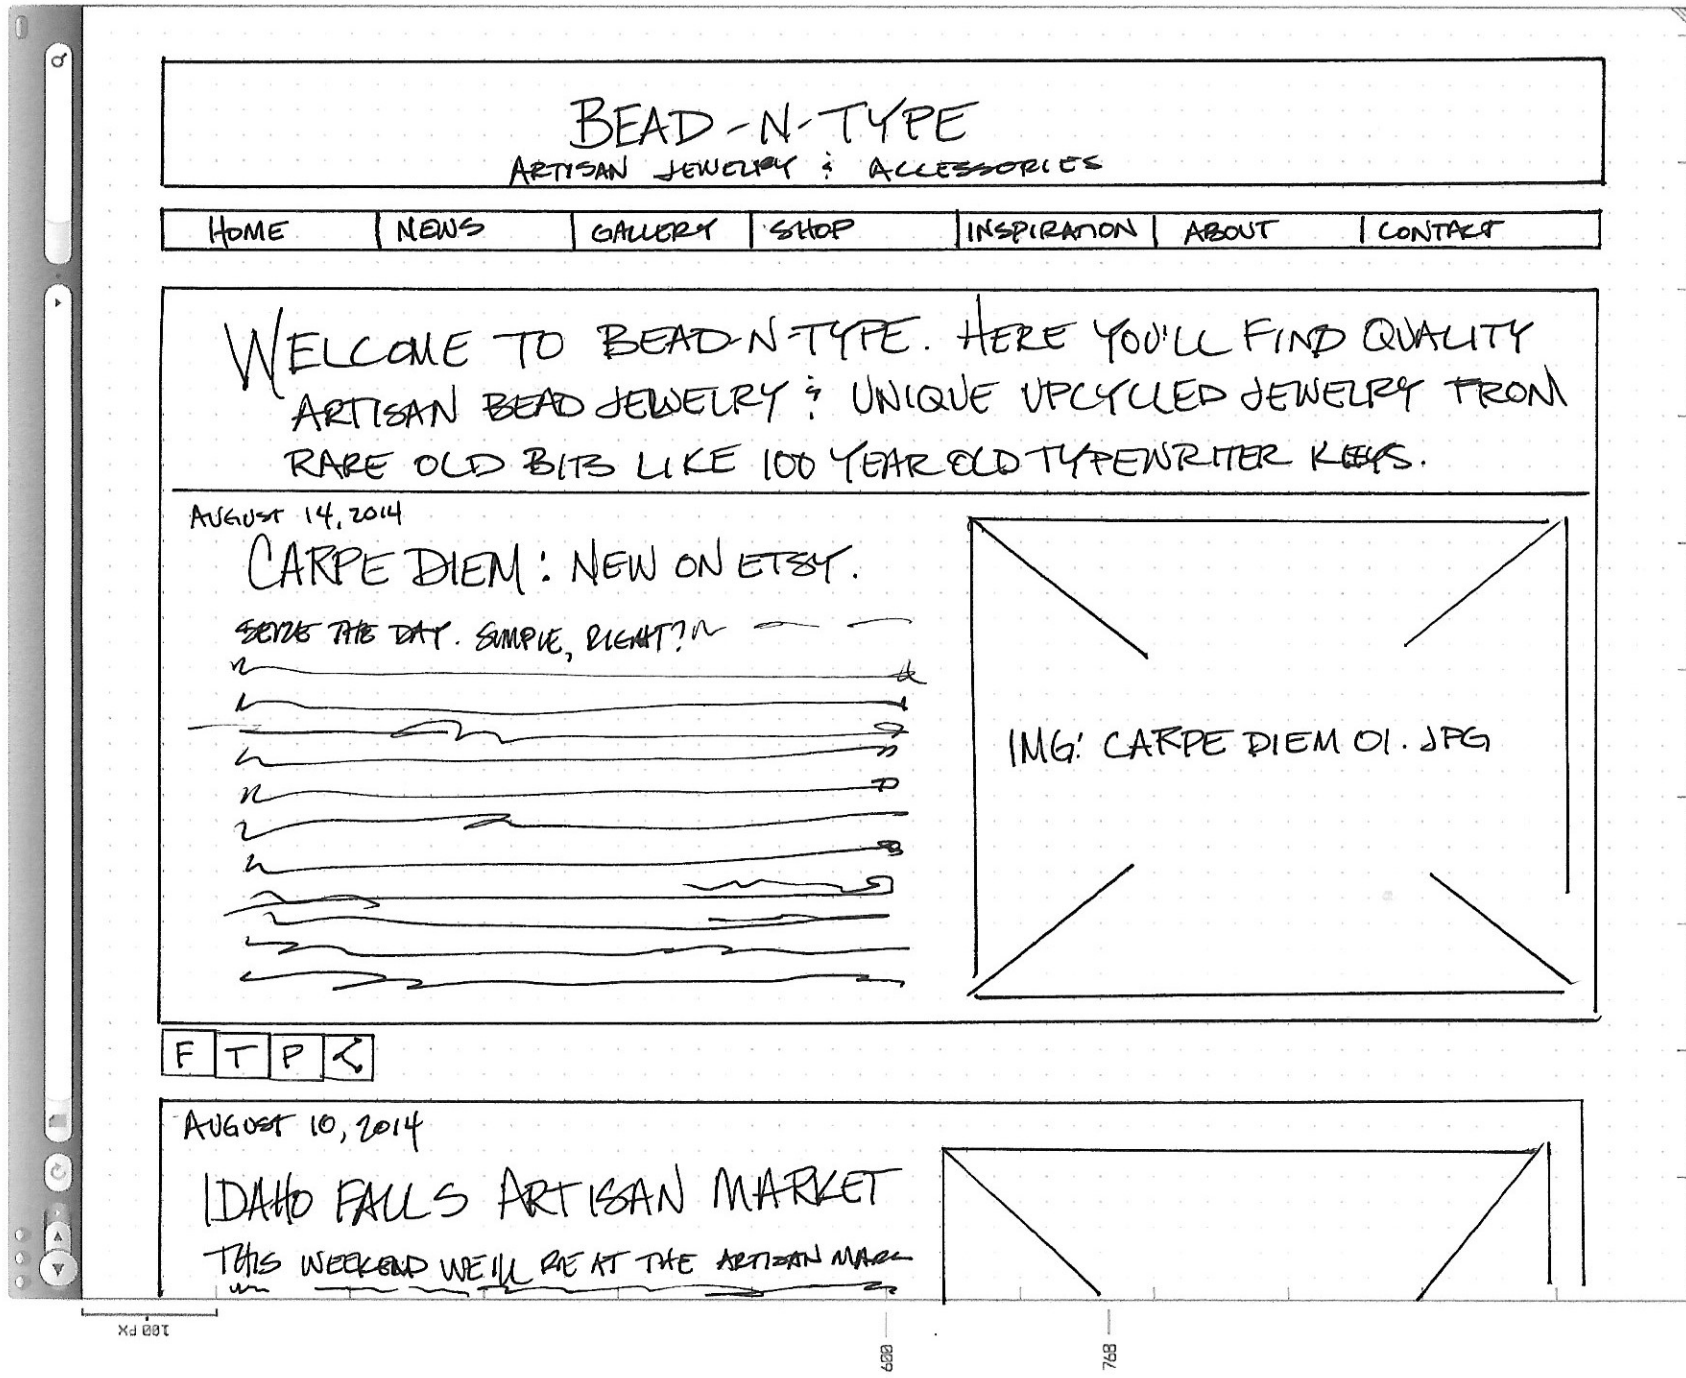 BEAD-N-TYPE
ARTISAN JEWELRY & ACCESSORIES
HOME NEWS GALLERY SHOP INSPIRATION ABOUT CONTACT
WELCOME TO BEAD-N-TYPE. HERE YOU'LL FIND QUALITY
ARTISAN BEAD JEWELRY & UNIQUE UPCYCLED JEWELRY FROM
RARE OLD BITS LIKE 100 YEAR OLD TYPEWRITER KEYS.
AUGUST 14, 2014
CARPE DIEM: NEW ON ETSY.
SEIZE THE DAY. SIMPLE, RIGHT?
IMG: CARPE DIEM 01. JPG
F T P
AUGUST 10, 2014
IDAHO FALLS ARTISAN MARKET
THIS WEEKEND WE'LL BE AT THE ARTISAN MARK
100 PX
600
768